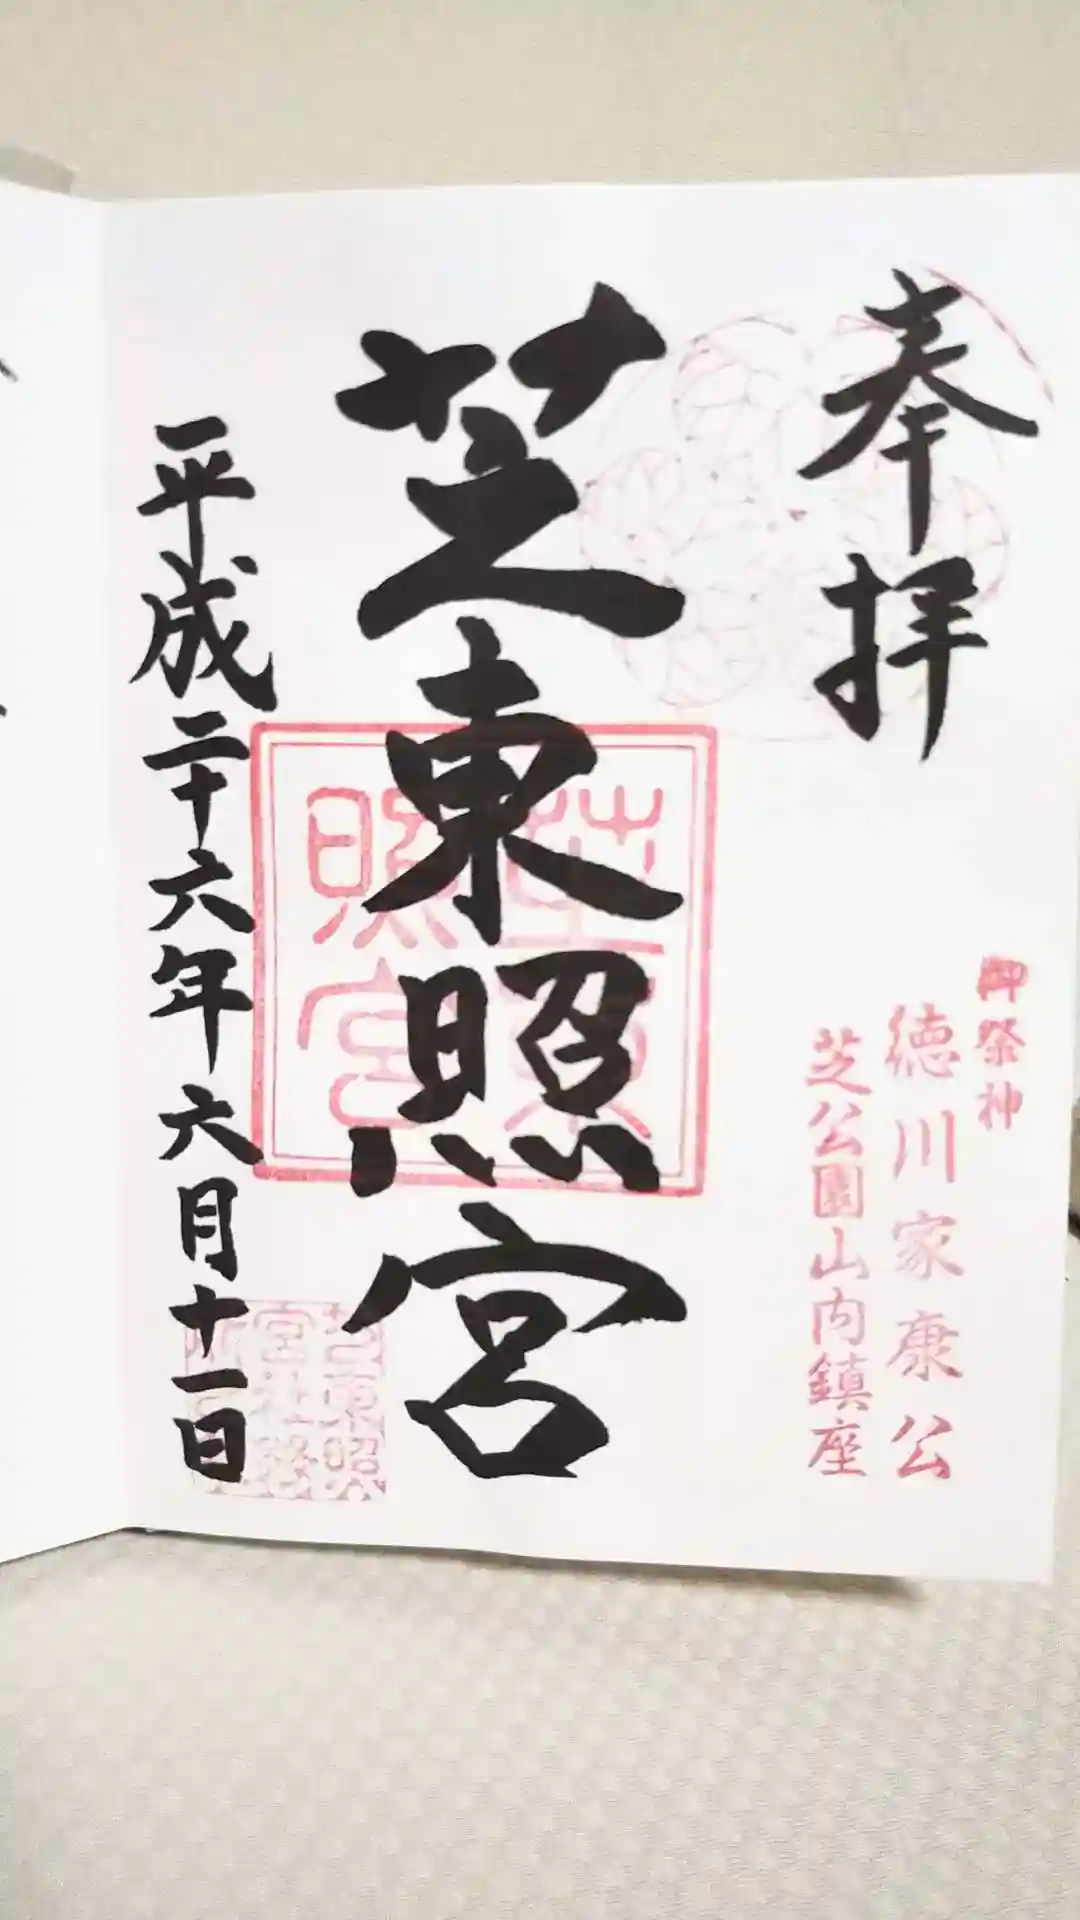 奉拝
御祭神
徳川家康公
芝公園山内鎮座
芝東照宮
芝東
照宮
平成二十六年六月十一日
芝東照
宮社務